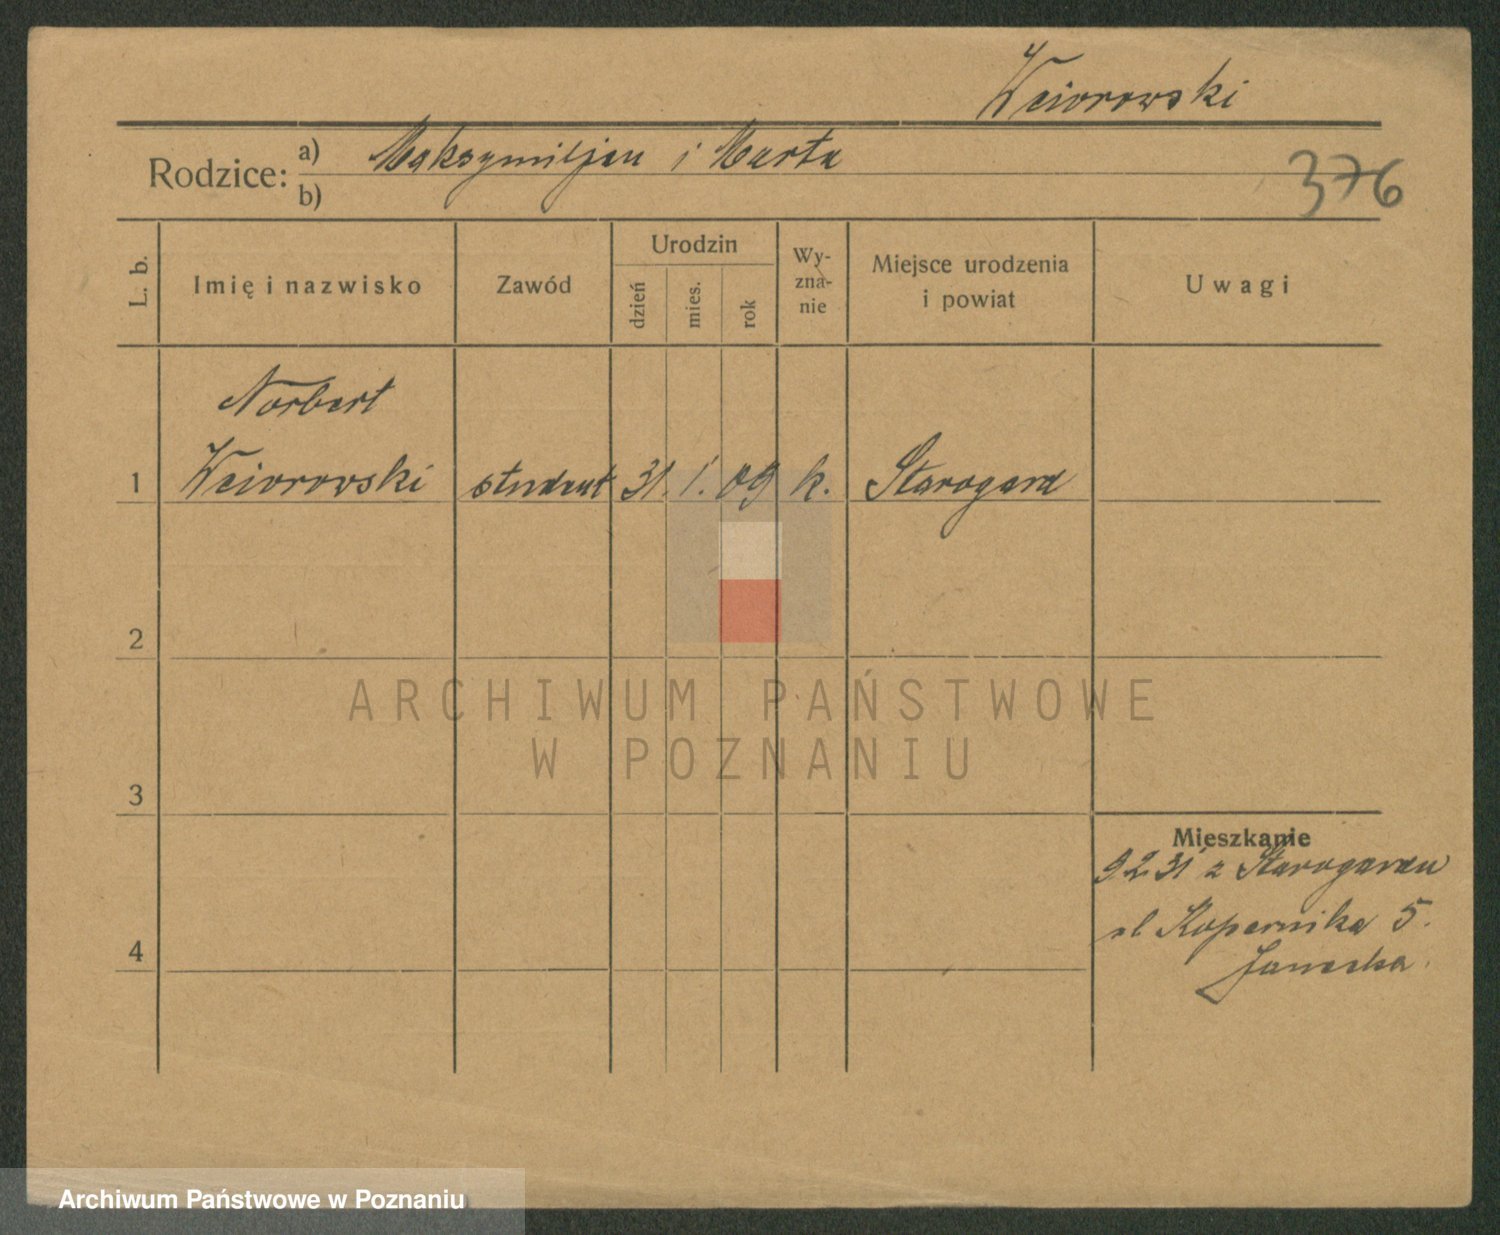 Wciorowski
Rodzice: a) Maksymiljan i Marta
b)
376
L. b.
Imię i nazwisko
Zawód
Urodzin
dzień
mies.
rok
Wy-
zna-
nie
Miejsce urodzenia
i powiat
Uwagi
Norbert
1 Wciorowski student 31. 1. 09 k. Starogard
2
3
4
Mieszkanie
9 2 31 z Starogardu
ul Kopernika 5.
ARCHIWUM PAŃSTWOWE
W POZNANIU
Archiwum Państwowe w Poznaniu